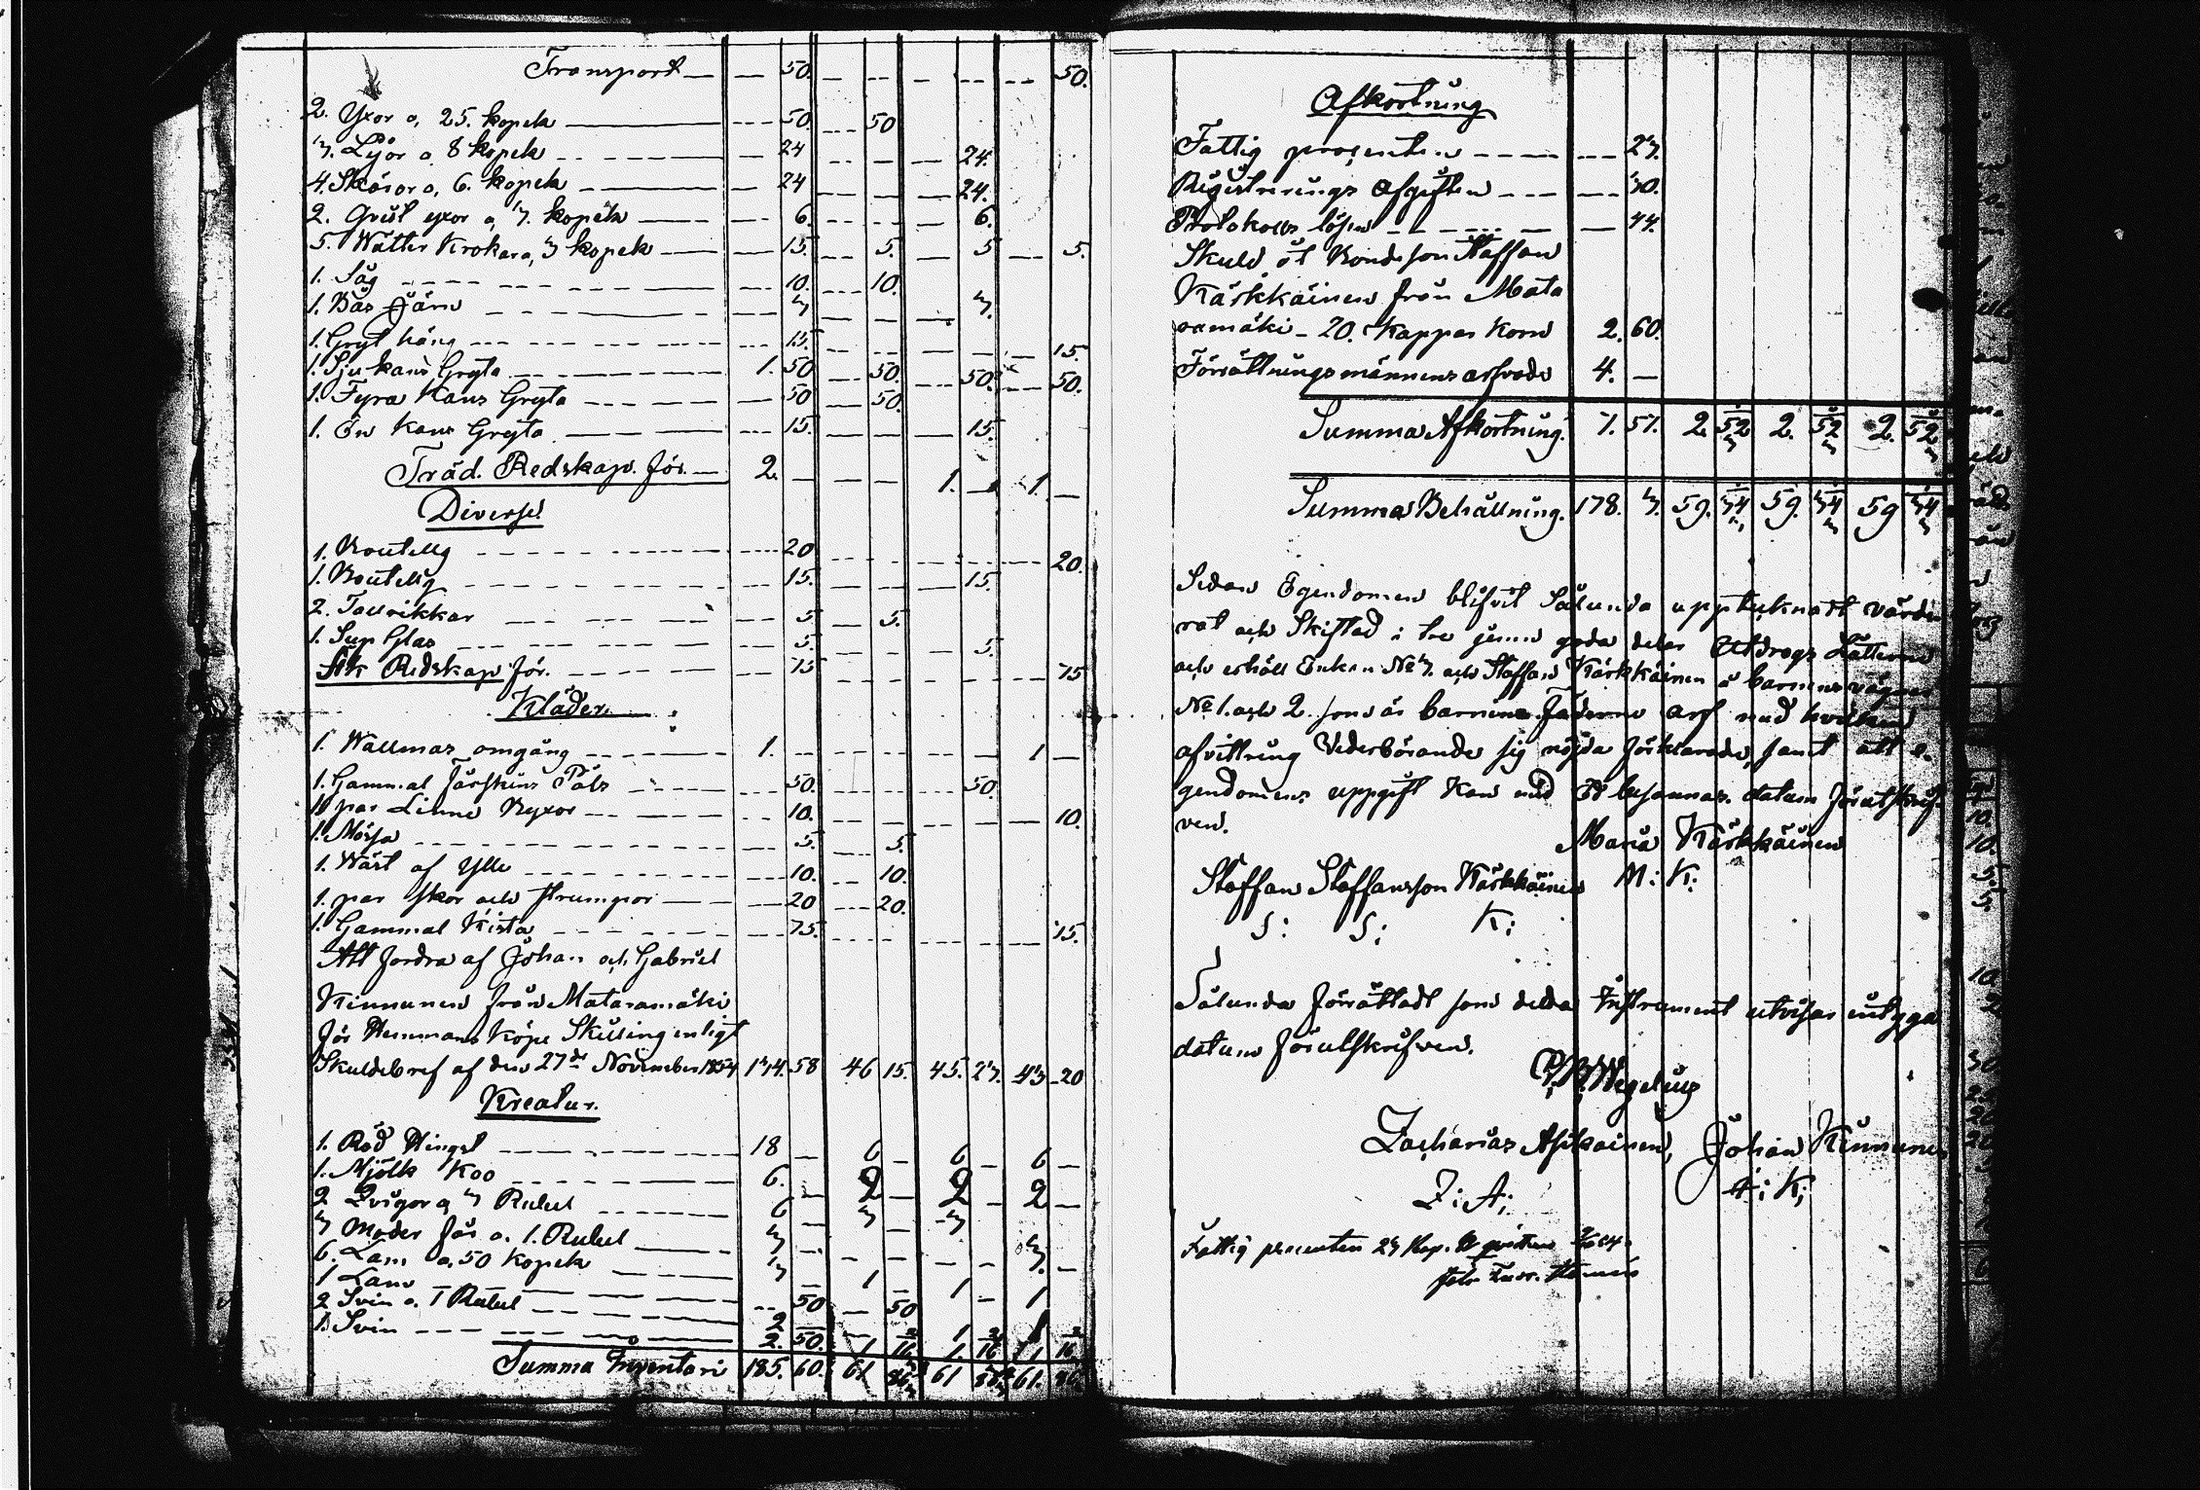 Transport — — 50. — — — — — — 50.
2. Yxor a, 25. kopek — 50. — 50
3. Lÿor a, 8 kopek — 24 — — — 24.
4. Skäror a, 6. kopek — 24 — — — 24.
2. Qvist yxor a, 3. kopek — 6. — — — 6.
5. Wätter Krokar a, 3 kopek — 15. — 5. — 5 — 5.
1. Såg — 10. — 10.
1. Bås Järn — 3 — — — 3.
1. Gryt häng — 15. — — — — — 15.
1. Sju kans Gryta — 1. 50 — 50. — 50. — 50.
1. Fyra Kans Gryta — 50 — 50.
1. En Kans Gryta — 15. — — — 15.
Träd. Redskap. för. — 2. — — — 1. — 1. —
Diverse
1. Boutellg — 20 — — — — — 20.
1. Boutellg — 15. — — — 15.
2. Tallrikkar — 5 — 5.
1. Sup Glas — 5. — — — 5.
Redskap för. — 15 — — — — — 15
Kläder.
1. Wallmar omgång — 1. — — — — — 1 —
1. Gammal Fårskins Päls — 50. — — — 50.
1 par Linne Byxor — 10. — — — — — 10.
1. Mössa — 5. — 5.
1. Wäst af Ylle — 10. — 10.
1. par skor och strumpor — 20 — 20.
1. Gammal Kista — 15. — — — — — 15.
Att fordra af Johan och Gabriel
Kinnunen från Mataramäki
för Hemmans Köpe Skilling enligt
Skuldebref af den 27de November 1854 134. 58 46 15. 45. 23. 43 20
Kreatur.
1. Röd Hingst — 18 — 6 — 6 — 6 —
1. Mjölk Koo — 6. — 2 — 2 — 2 —
2 Qvigor a 3 Rubel — 6 — 3 — 3
3 Moder får a. 1. Rubel — 3 — — — — — 3. —
6. Lam a, 50 Kopek — 3 — 1 — 1 — 1
1 Lam — 50 — 50
2 Svin a. 1 Rubel — 2 — — — 1 — 1
1. Svin — 2. 50. 1 16 1 16 1 16
Summa Inventari 185. 60. 61 86 61 86 61. 86
Afkortning
Fattig procenten — 23.
Registrerings Afgiften — 30.
Protokolls lösen — 44.
Skuld åt Bondeson Staffan
Kärkkäinen från Mata
ramäki — 20. Kappar Korn 2. 60.
Förrättningsmännens arfvode 4. —
Summa Afkortning. 7. 57. 2. 52 2. 52 2. 52
Summa Behållning. 178. 3. 59. 34 59. 34 59 34
Sedan Egendomen blifvit Sålunda upptecknadt värde
rat och Skiftad i tre jemn goda delar Utdrogs Lotterne
och erhöll Enkan No 3. och Staffan Kärkkäinen å barnens vägnar
No 1. och 2. som är barnens Fäderne arf med hvilken
afvittring Vederbörande sig nöjda förklarade, samt att e-
gendomens uppgift kan med Ed besannas. datum förutskrif-
ven.
Maria Kärkkäinen
M: K:
Staffan Staffansson Kärkkäinen
S: S: K:
Sålunda förrättadt som detta Instrument utvisar intyga
datum förutskrifven.
Wegelius
Zacharias Asikainen, Johan Kinnunen
Z: A; K;
Fattig procenten 23 Kop.